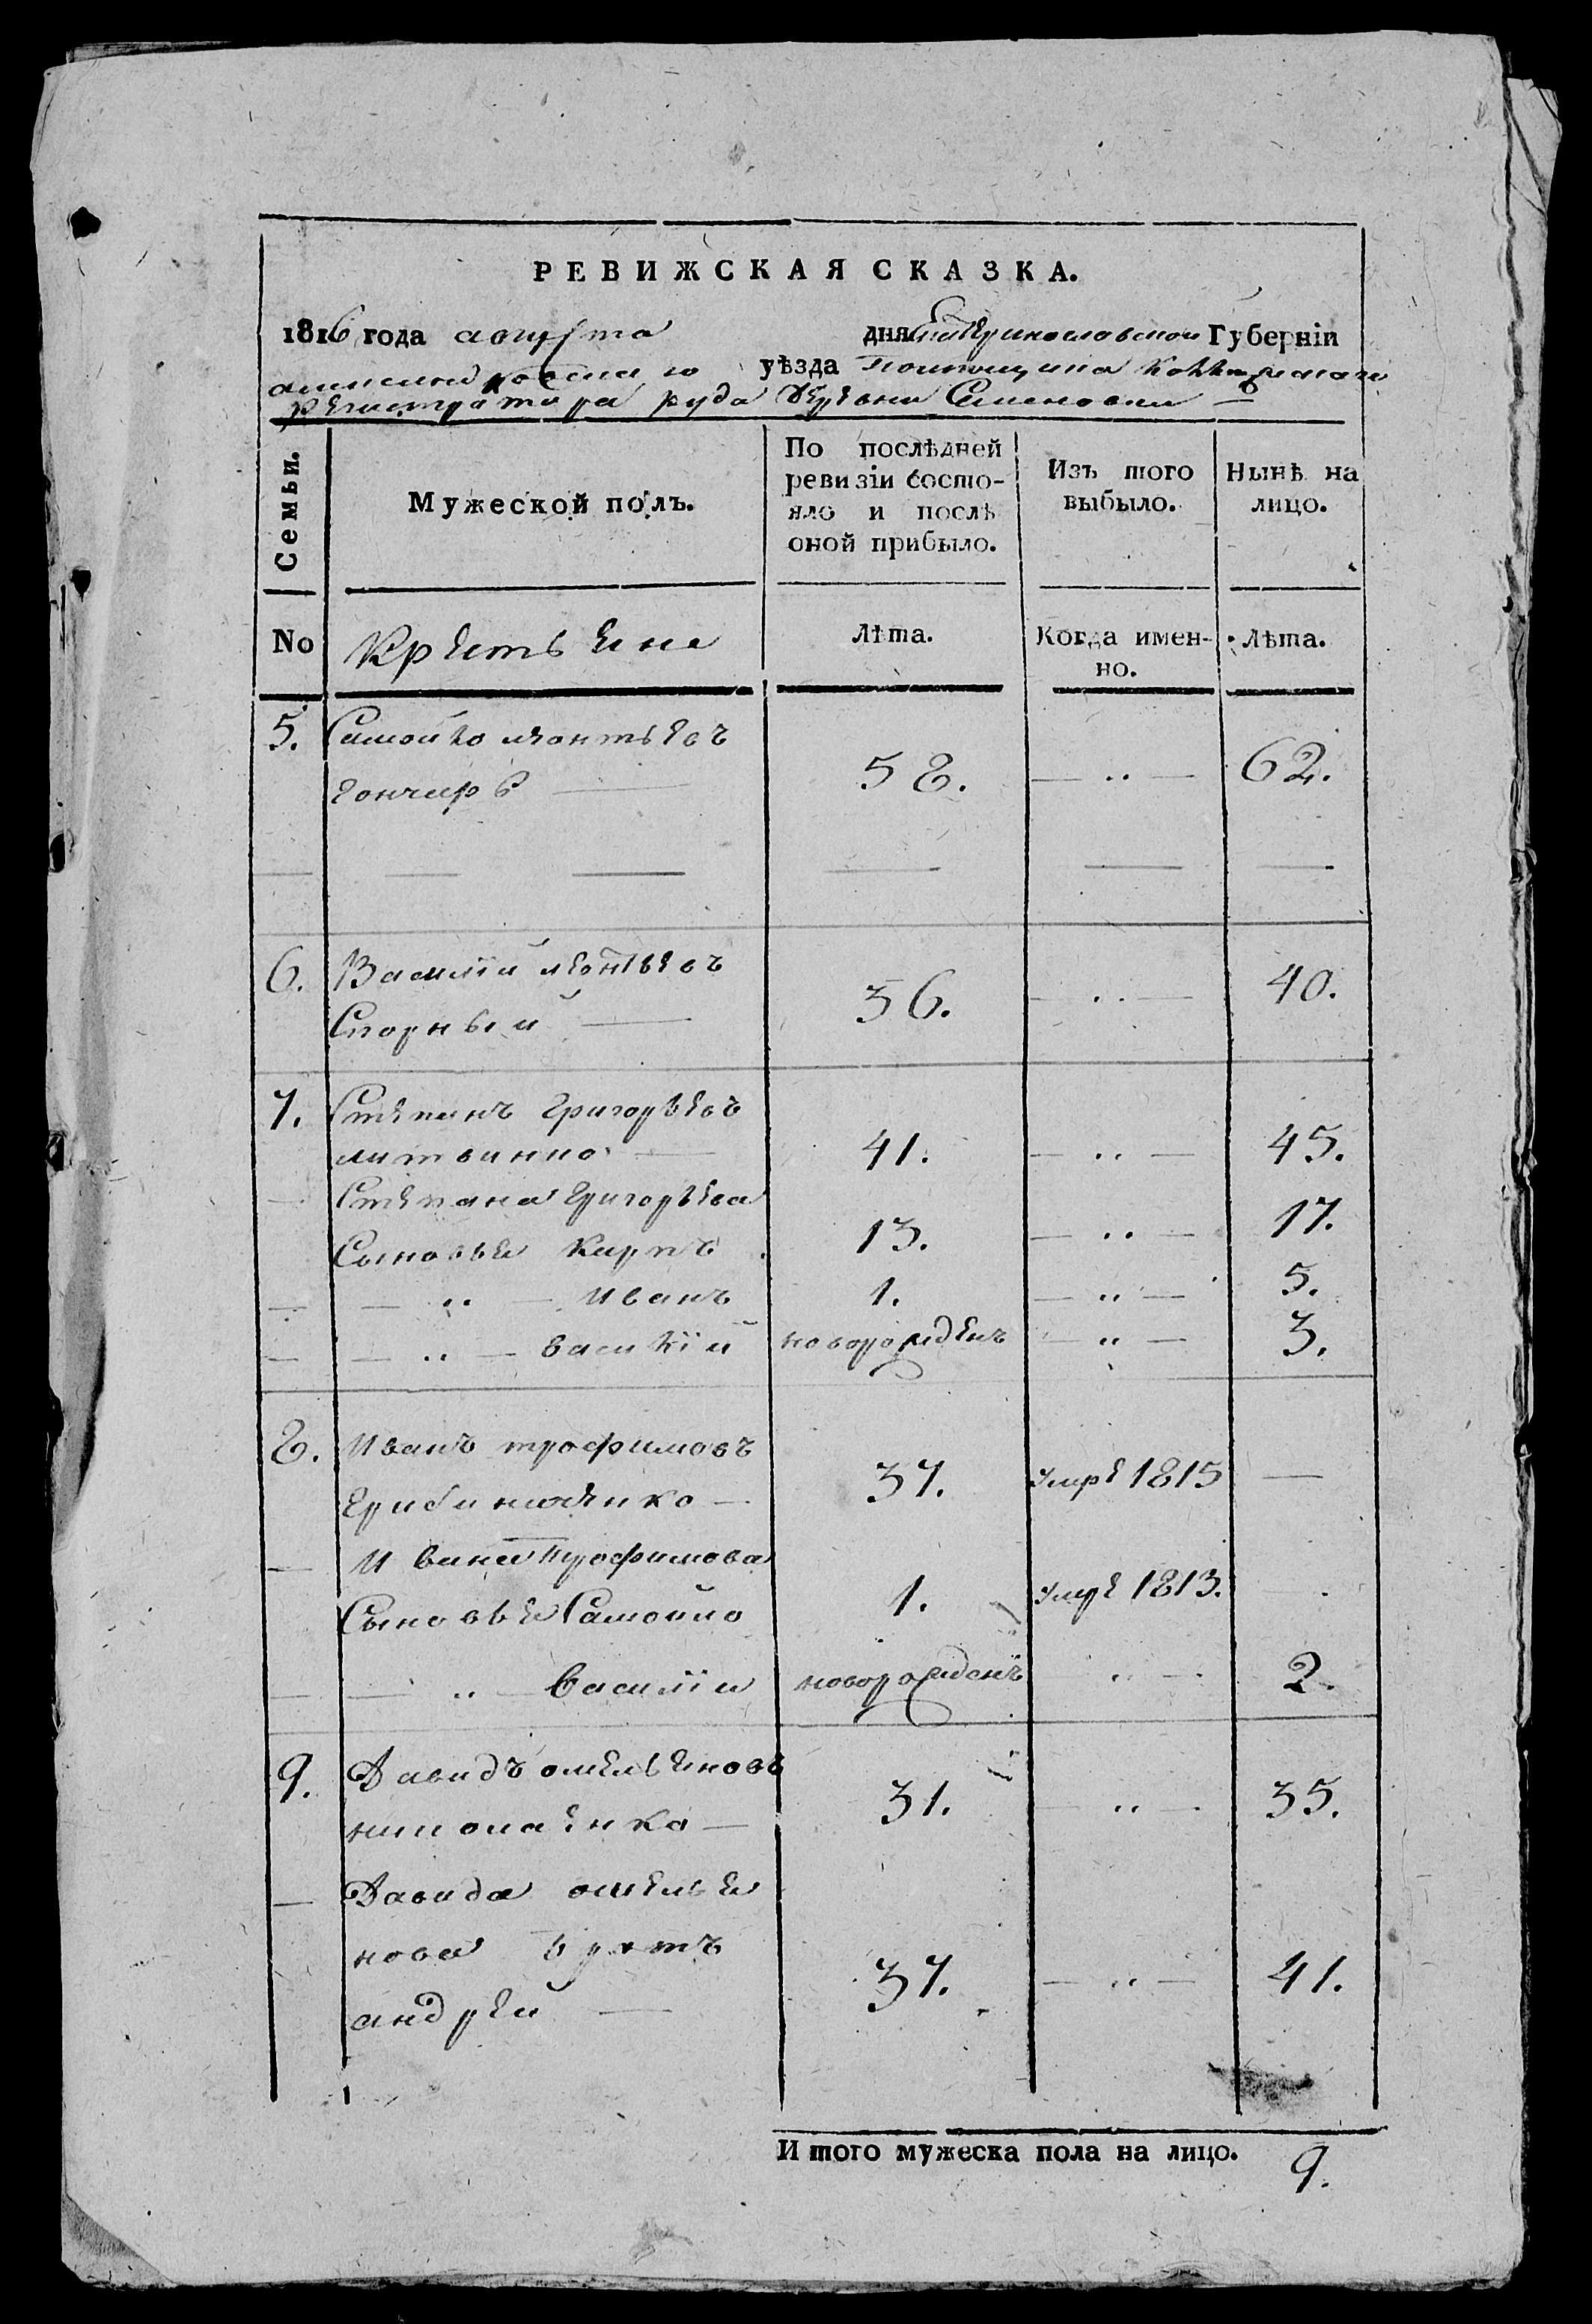 РЕВИЖСКАЯ СКАЗКА.
1816 года августа дня Екатеринославской Губерніи
александровскаго уѣзда помещика коллежскаго
регистратора руда деревни Семеновки —
Семьи. Мужеской полъ. По послѣдней ревизіи состояло и послѣ оной прибыло. Изъ того выбыло. Нынѣ на лицо.
No Крестьяне Лѣта. Когда именно. Лѣта.
5. Самойло леонтьевъ
гончаръ — 58. — ,, — 62.
6. Василий леонтьевъ
Спорный — 36. — ,, — 40.
7. Степанъ григорьевъ
литвинно — 41. — ,, — 45.
— Степана григорьева
Сыновья Карпъ 13. — ,, — 17.
— — ,, — Иванъ 1. — ,, — 5.
— — ,, — василій новорожденъ — ,, — 3.
8. Иванъ трофимовъ
37. умре 1815 —
— Ивана трофимова
Сыновья Самойло 1. умре 1813.
— — ,, — василіи новорожденъ ,, — 2.
9. Давидъ омельяновъ
31. — ,, — 35.
— Давида омелья
нова братъ
андрей — 37. — ,, — 41.
Итого мужеска пола на лицо. 9.